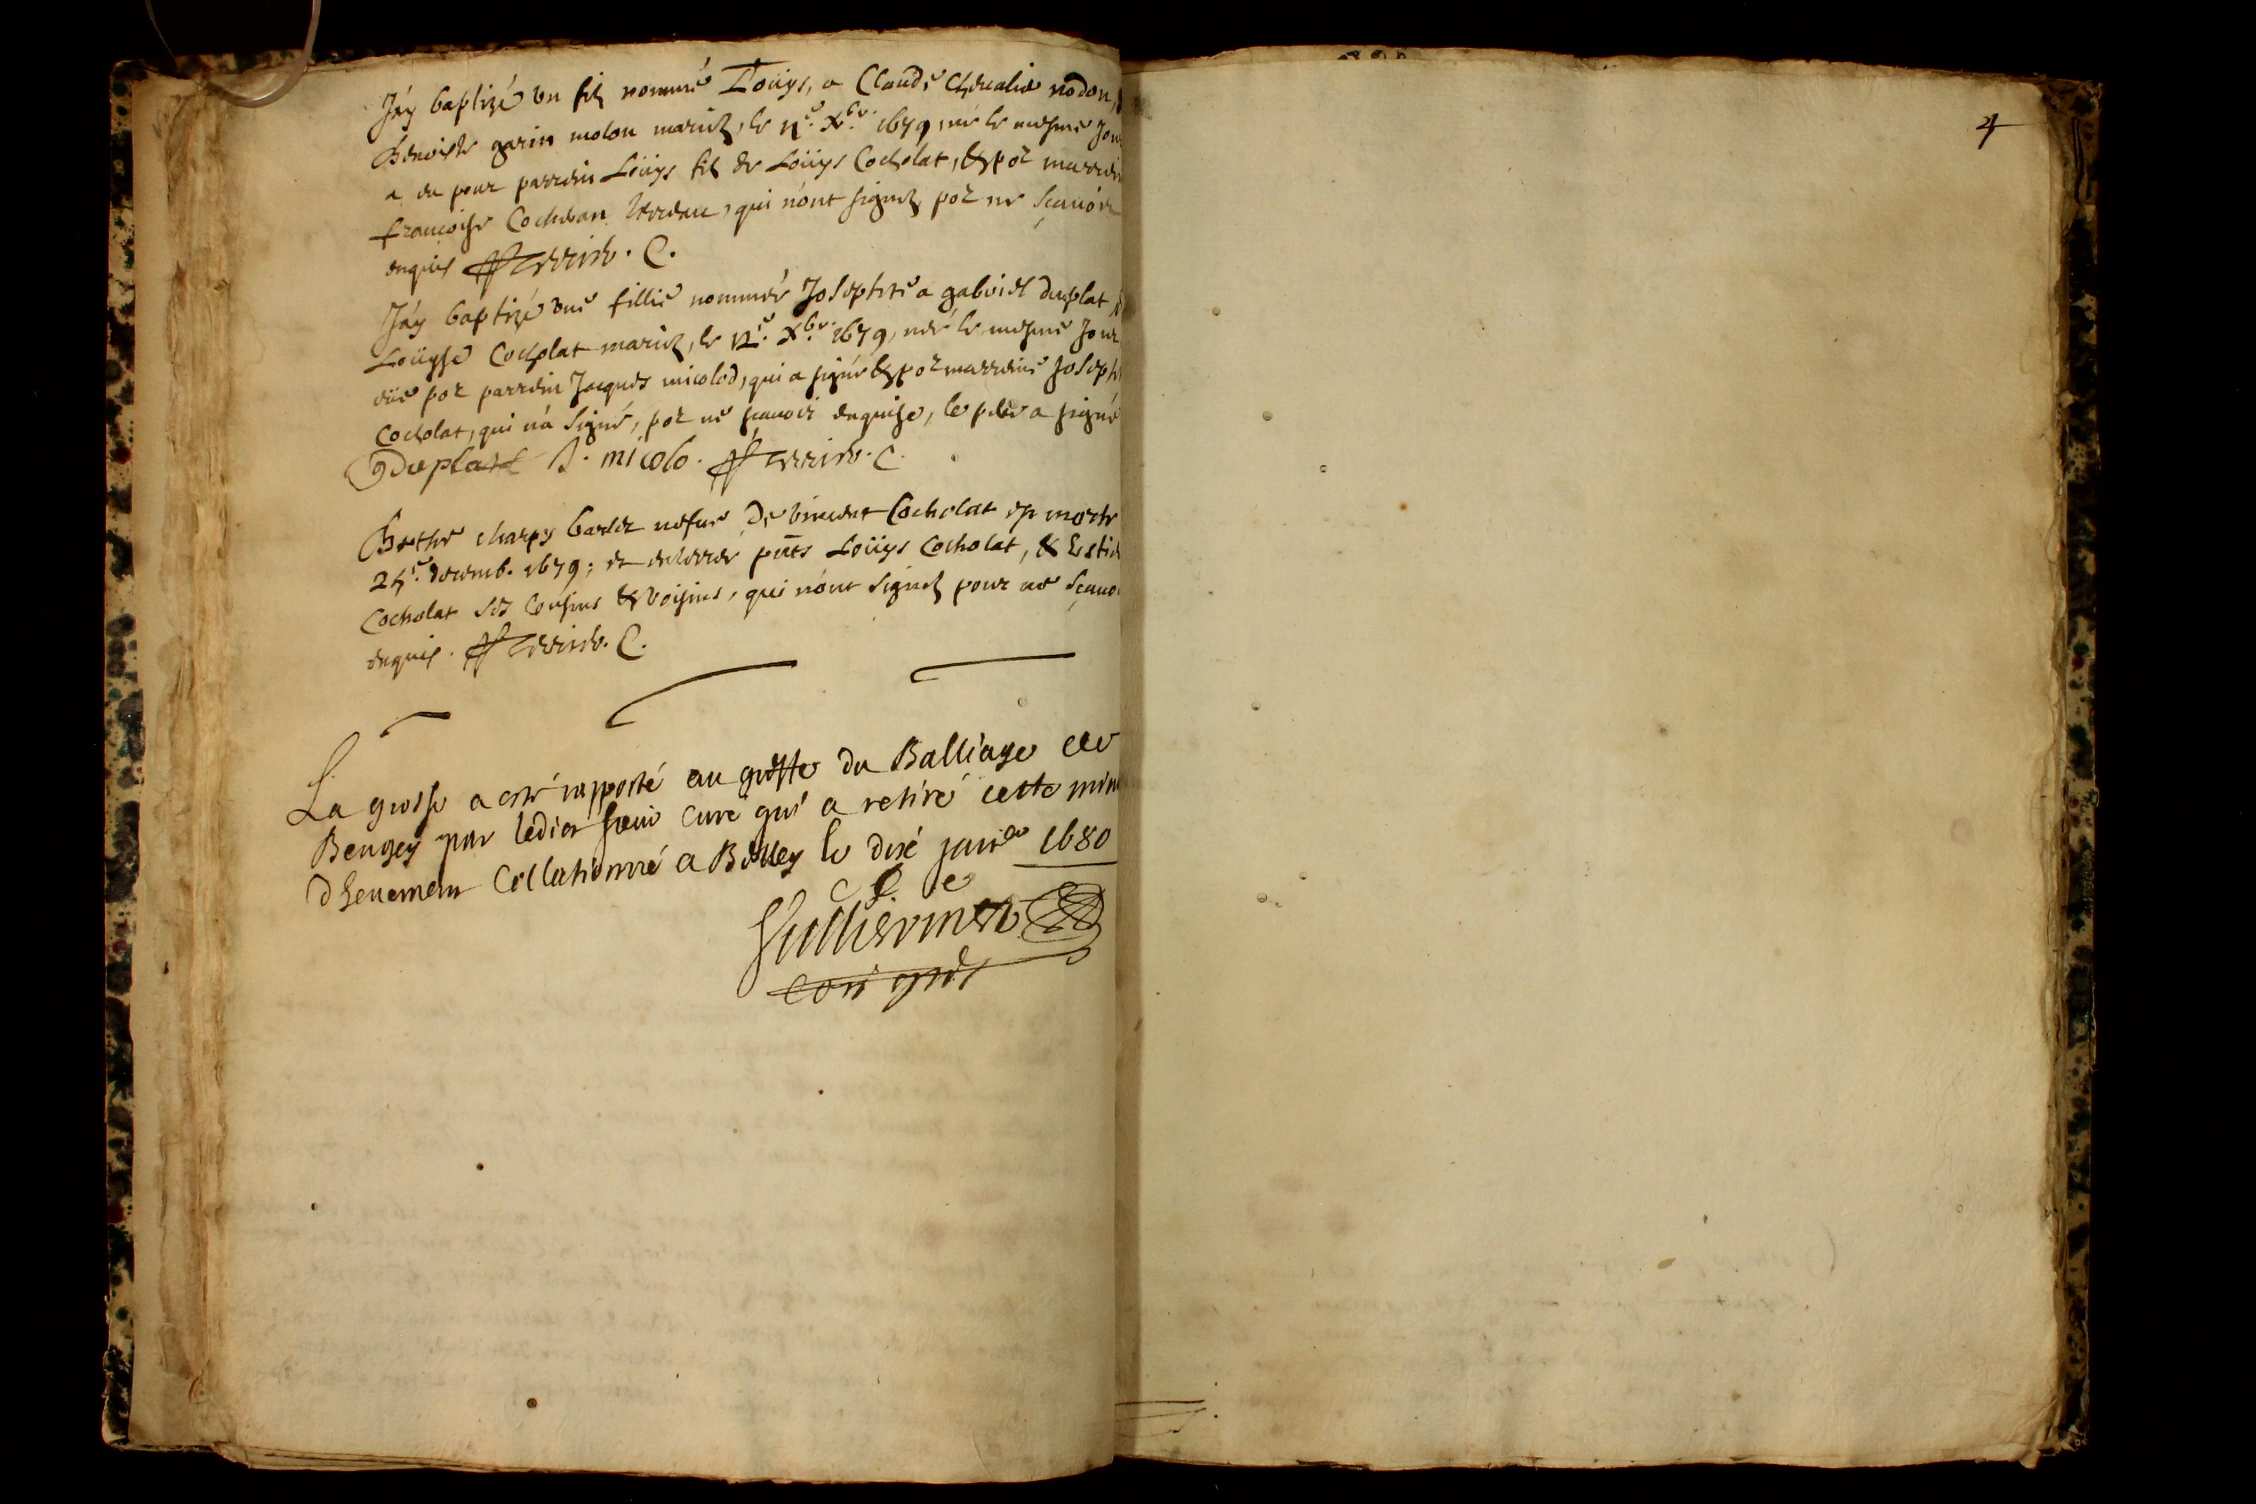 Jáy baptizé un filz nommé Loüys, a Claude Cheualie nodon,
Benoiste garin molon mariez, le 11e. Xbr. 1679, né le mesme Jour
a eu pour parrein Loüys filz de Loüys Cocholat, & por marreine
francoise Cocheban, qui nónt signez por ne sçauóir
enquis fferrier. C.
Jáy baptizé une fillie nommée Josephte a gabriel duplat,
Loüyse Cocholat mariez, le 12e. Xbr. 1679, neé le mesme Jour
eüe por parrein Jacques micolod, qui a signé & por marreine Joseph
Cocholat, qui ná signé, por ne sçauoir enquise, le pere a signé
gDuplatt J. micolo. fferrier. C.
Bethe charpy barlet uefue De vincent Cocholat est morte
25e. decemb. 1679; et enterreé pnts Loüys Cocholat, & Estie
Cocholat ses Cousins & voisins, qui nónt signez pour ne sçauo
enquis. fferrier. C.
La grosse a esté rapporté au greffe du Balliage de
Beugey par ledict sieur curé qui a retiré cette minu
dheuement Collationné a Belley le dixe janer 1680
Gullierme
Com gref
4